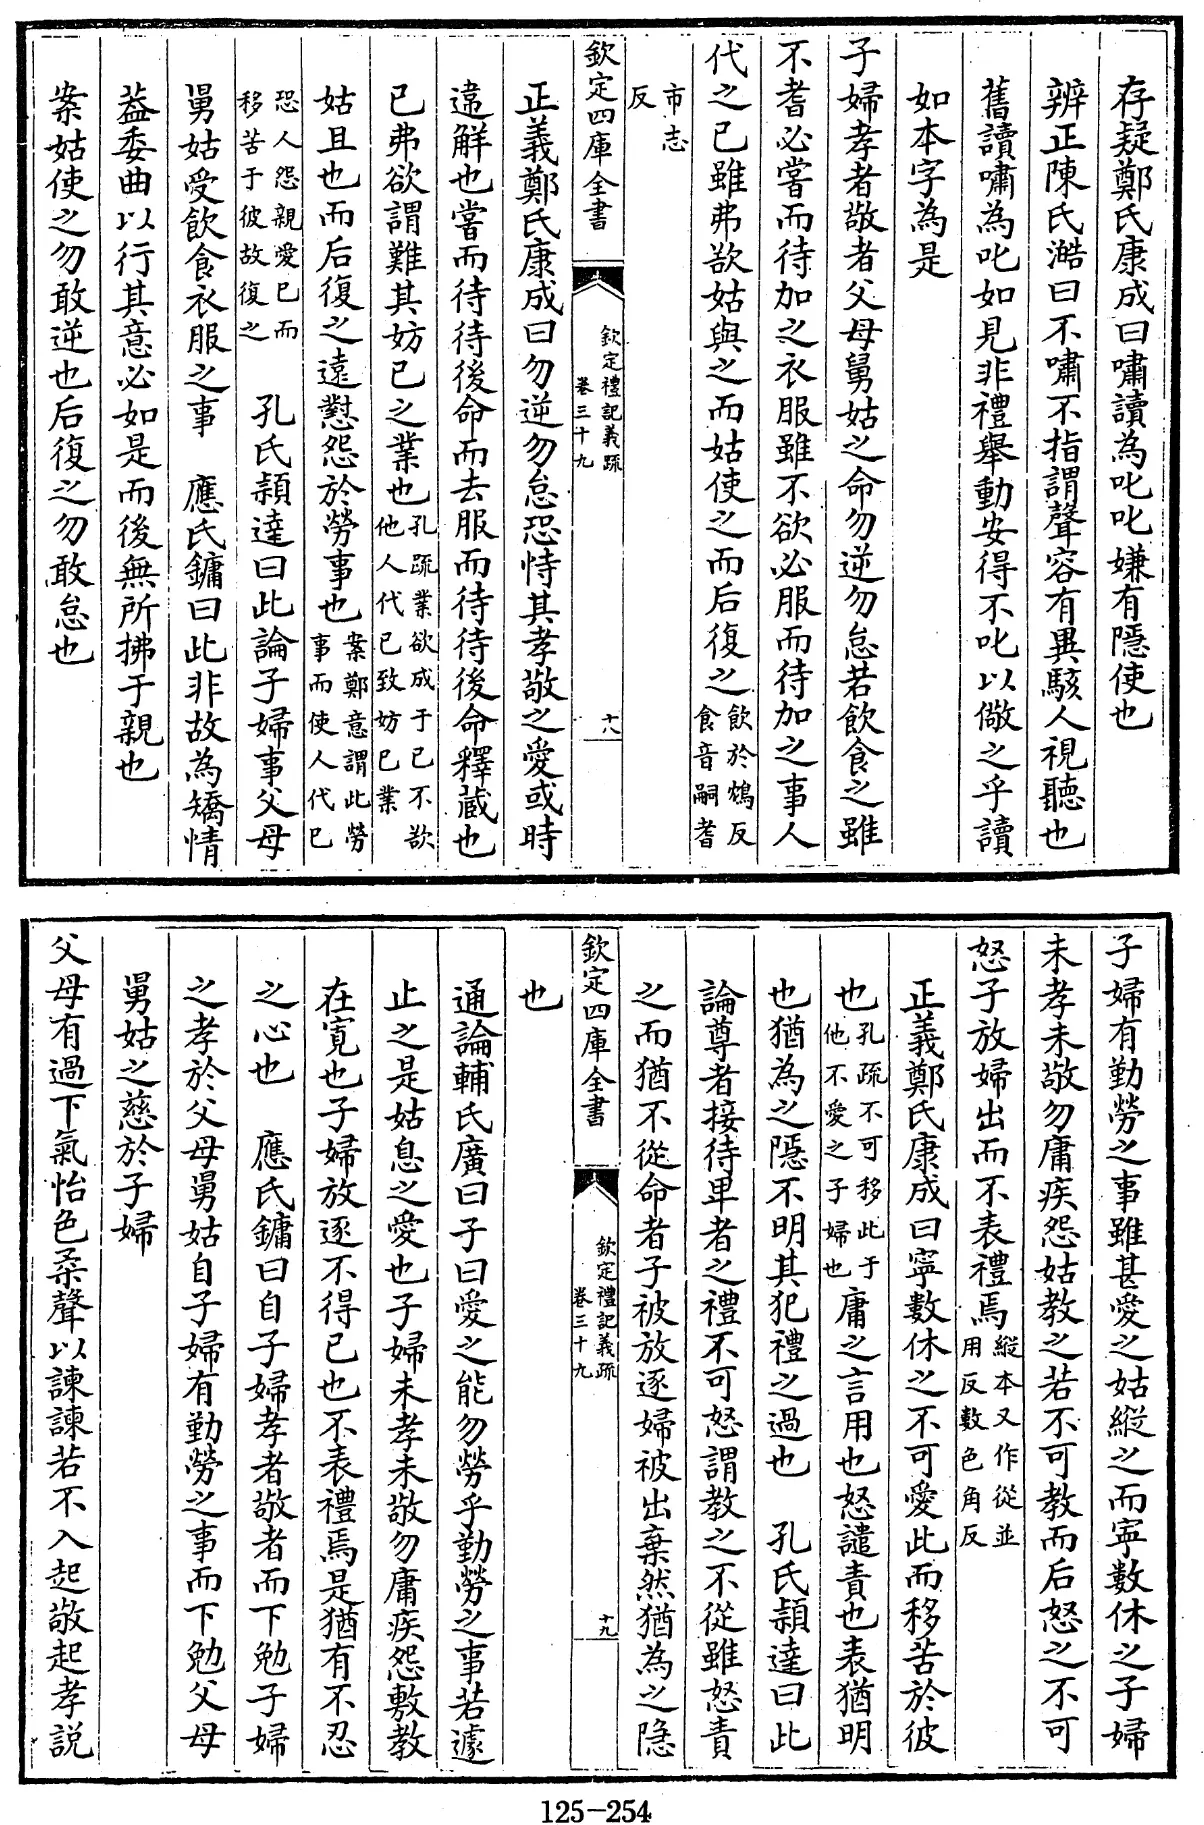 存疑鄭氏康成曰嘯讀為叱叱嫌有隱使也
辨正陳氏澔曰不嘯不指謂聲容有異駭人視聽也
舊讀嘯為叱如見非禮舉動安得不叱以儆之乎讀
如本字為是
子婦孝者敬者父母舅姑之命勿逆勿怠若飲食之雖
不耆必嘗而待加之衣服雖不欲必服而待加之事人
代之已雖弗欲姑與之而姑使之而后復之飲於鴆反
食音嗣耆
市志
反
欽定四庫全書
欽定禮記義疏
卷三十九
十八
正義鄭氏康成曰勿逆勿怠恐恃其孝敬之愛或時
違解也嘗而待待後命而去服而待待後命釋藏也
已弗欲謂難其妨已之業也孔疏業欲成于已不欲
他人代已致妨已業
姑且也而后復之遠懟怨於勞事也案鄭意謂此勞
事而使人代已
恐人怨親愛已而
移苦于彼故復之 孔氏穎達曰此論子婦事父母
舅姑受飲食衣服之事 應氏鏞曰此非故為矯情
葢委曲以行其意必如是而後無所拂于親也
案姑使之勿敢逆也后復之勿敢怠也
子婦有勤勞之事雖甚愛之姑縱之而寧數休之子婦
未孝未敬勿庸疾怨姑教之若不可教而后怒之不可
怒子放婦出而不表禮焉縱本又作從並
用反數色角反
正義鄭氏康成曰寧數休之不可愛此而移苦於彼
也孔疏不可移此于
他不愛之子婦也庸之言用也怒譴責也表猶明
也猶為之隱不明其犯禮之過也 孔氏穎達曰此
論尊者接待卑者之禮不可怒謂教之不從雖怒責
之而猶不從命者子被放逐婦被出棄然猶為之隱
欽定四庫全書
欽定禮記義疏
卷三十九
十九
也
通論輔氏廣曰子曰愛之能勿勞乎勤勞之事若遽
止之是姑息之愛也子婦未孝未敬勿庸疾怨敷教
在寛也子婦放逐不得已也不表禮焉是猶有不忍
之心也 應氏鏞曰自子婦孝者敬者而下勉子婦
之孝於父母舅姑自子婦有勤勞之事而下勉父母
舅姑之慈於子婦
父母有過下氣怡色柔聲以諫諫若不入起敬起孝説
125-254